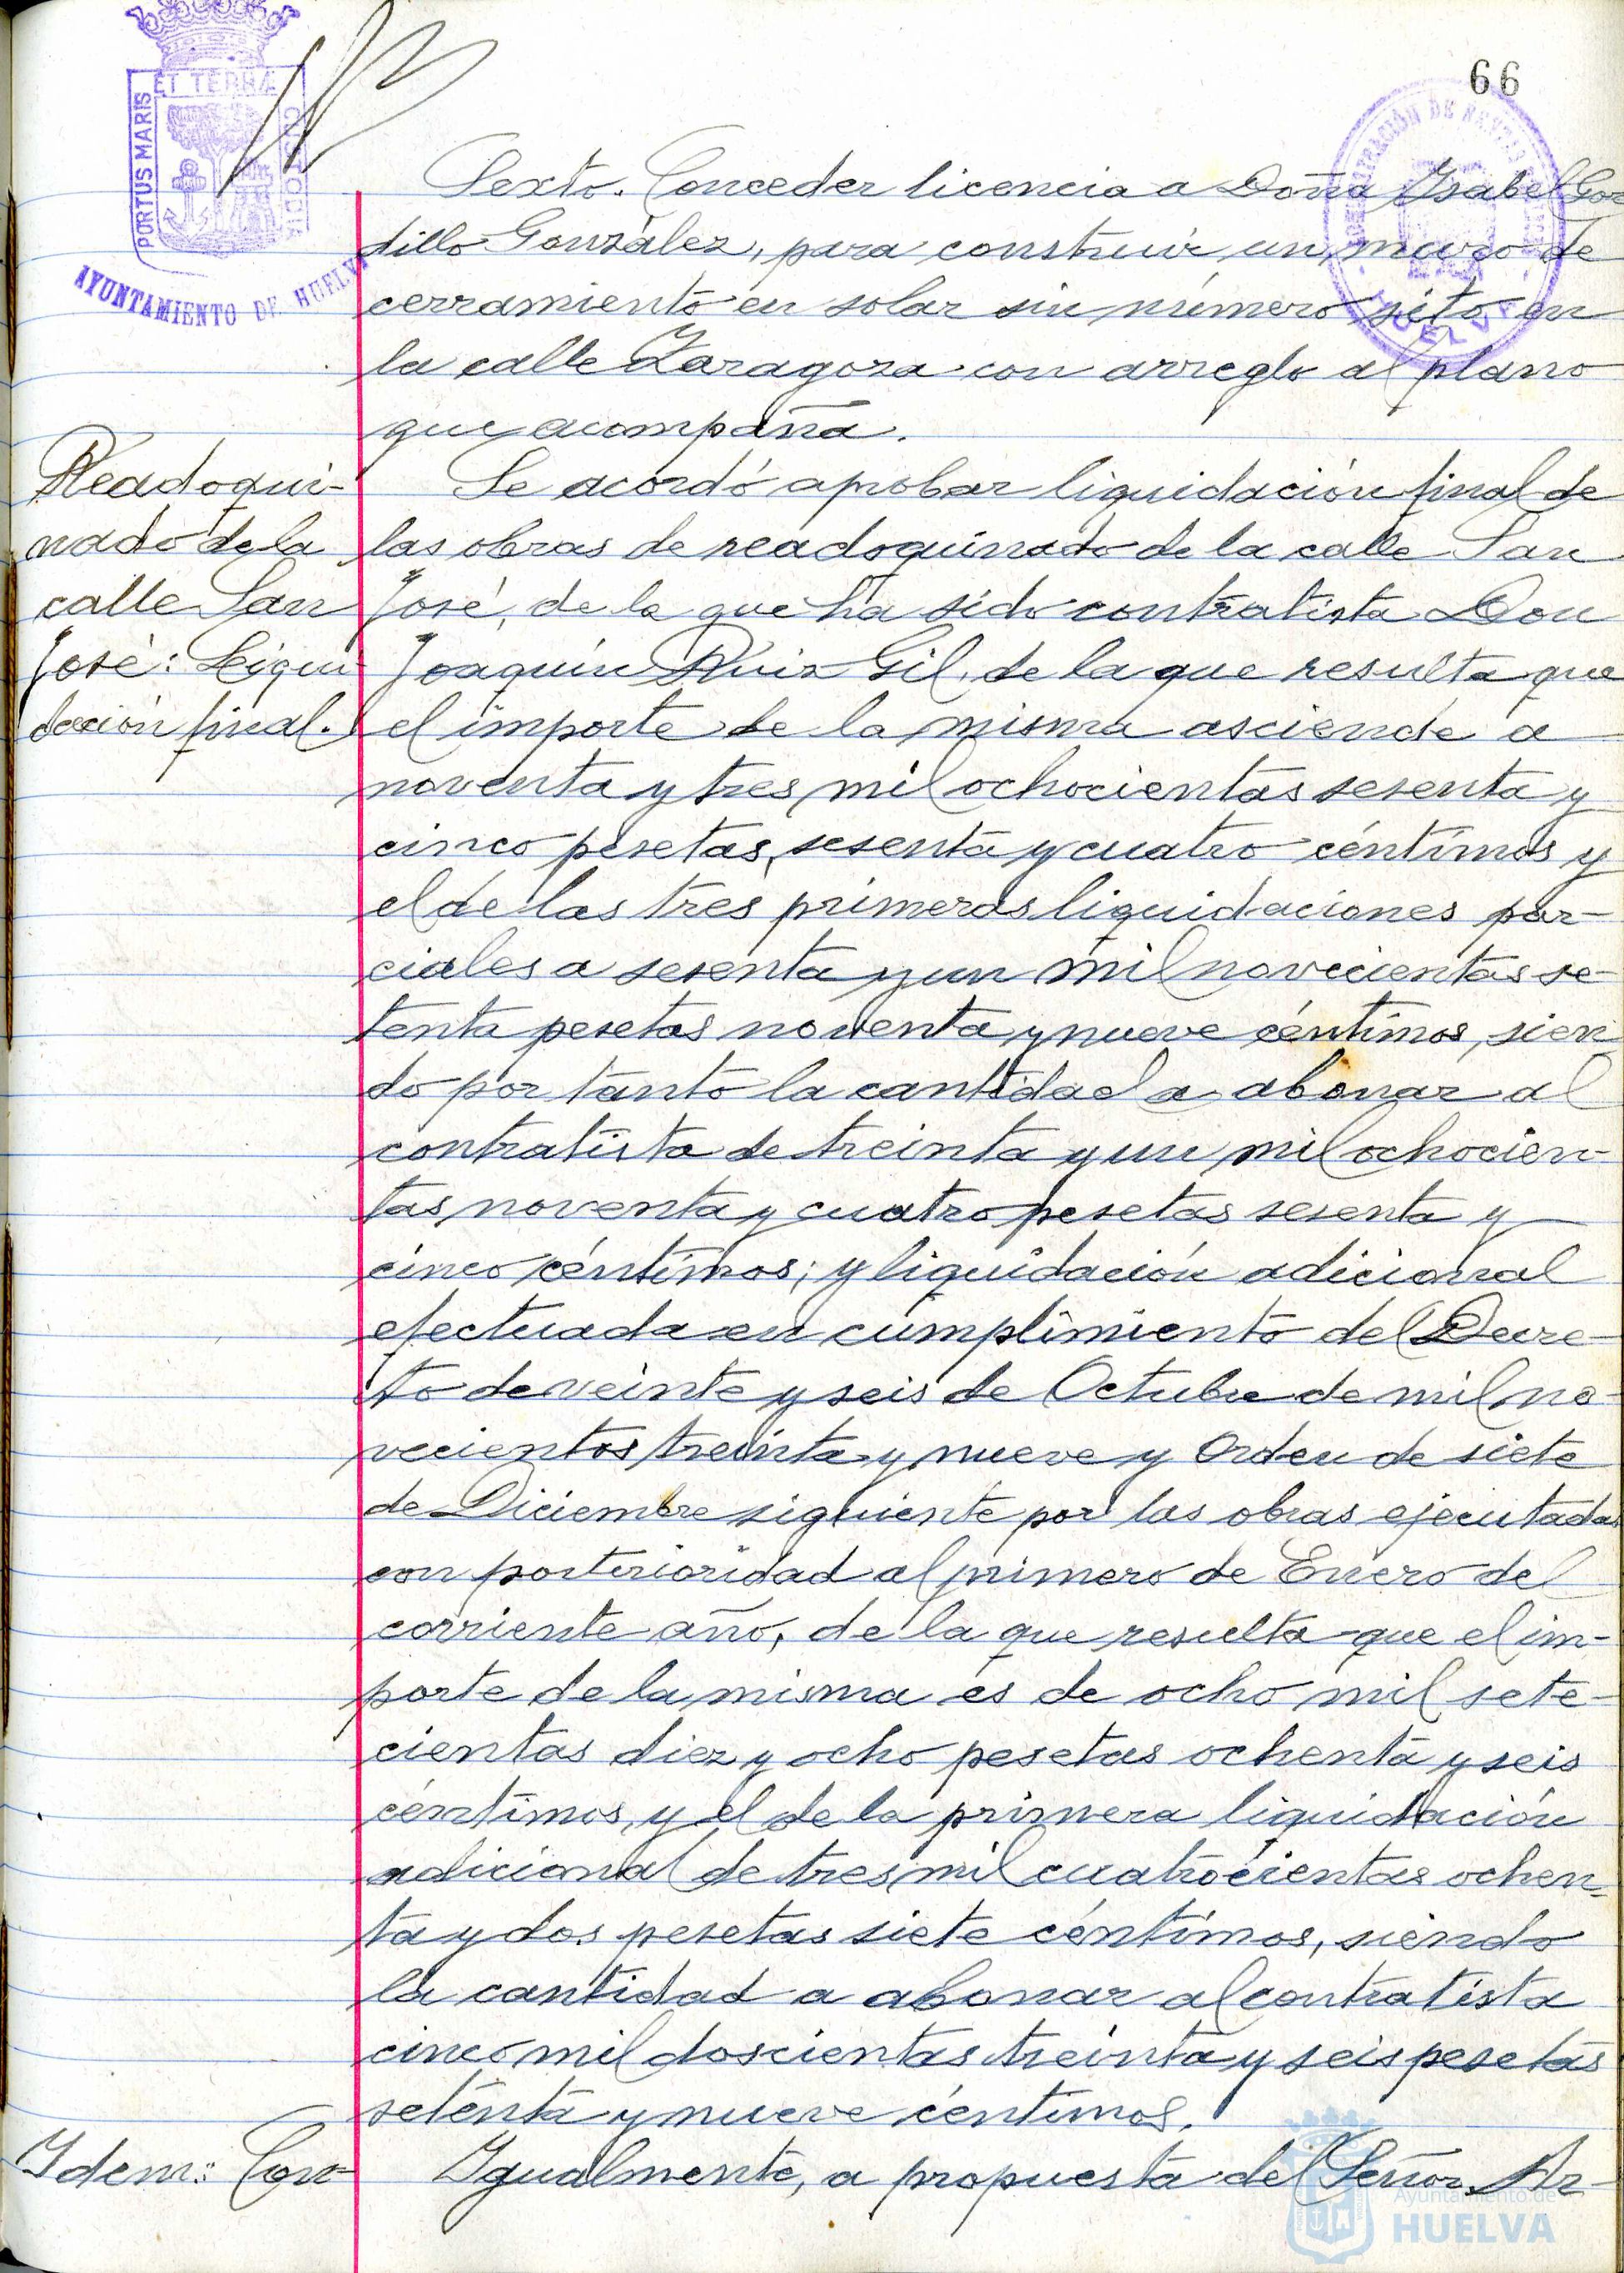 66
PORTUS MARIS
ET TERRÆ
CUSTODIA
AYUNTAMIENTO DE HUELVA
Sexto. Conceder licencia a Doña Ysabel Gor
dillo González, para construir un muro de
cerramiento en solar sin número sito en
la calle Zaragoza con arreglo al plano
que acompaña.
Readoqui-
nado de la
calle San
José: Liqui
dación final.
Se acordó aprobar liquidación final de
las obras de readoquinado de la calle San
José, de la que ha sido contratista Don
Joaquín Ruiz Gil, de la que resulta que
el importe de la misma asciende a
noventa y tres mil ochocientas sesenta y
cinco pesetas, sesenta y cuatro céntimos y
el de las tres primeras liquidaciones par-
ciales a sesenta y un mil novecientas se-
tenta pesetas noventa y nueve céntimos, sien
do por tanto la cantidad a abonar al
contratista de treinta y un mil ochocien-
tas noventa y cuatro pesetas sesenta y
cinco céntimos; y liquidación adicional
efectuada en cumplimiento del Decre-
to de veinte y seis de Octubre de mil no-
vecientos treinta y nueve y Orden de siete
de Diciembre siguiente por las obras ejecutadas
con posterioridad al primero de Enero del
corriente año, de la que resulta que el im-
porte de la misma es de ocho mil sete-
cientas diez y ocho pesetas ochenta y seis
céntimos, y el de la primera liquidación
adicional de tres mil cuatrocientas ochen-
ta y dos pesetas siete céntimos, siendo
la cantidad a abonar al contratista
cinco mil doscientas treinta y seis pesetas
setenta y nueve céntimos.
Ydem: Con-
Ygualmente, a propuesta del Señor Ar-
Ayuntamiento de
HUELVA